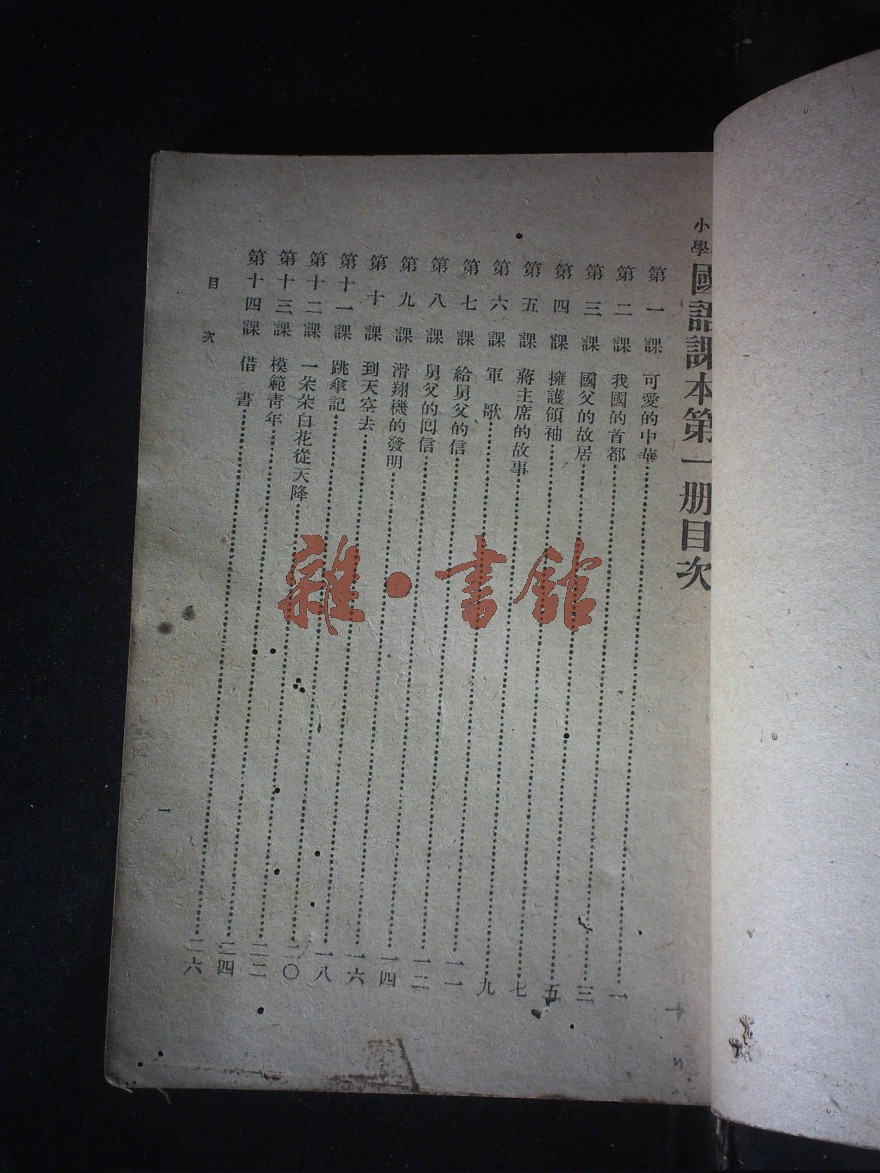 小學
國語課本第一册目次
第一課 可愛的中華……一
第二課 我國的首都……一
第三課 國父的故居……三
第四課 擁護領袖……五
第五課 蔣主席的故事……七
第六課 軍歌……九
第七課 給舅父的信……一一
第八課 舅父的回信……一二
第九課 滑翔機的發明……一四
第十課 到天空去……一六
第十一課 跳傘記……一八
第十二課 一朵朵白花從天降……二〇
第十三課 模範青年……二二
第十四課 借書……二四
二六
目次
一
雜·書館